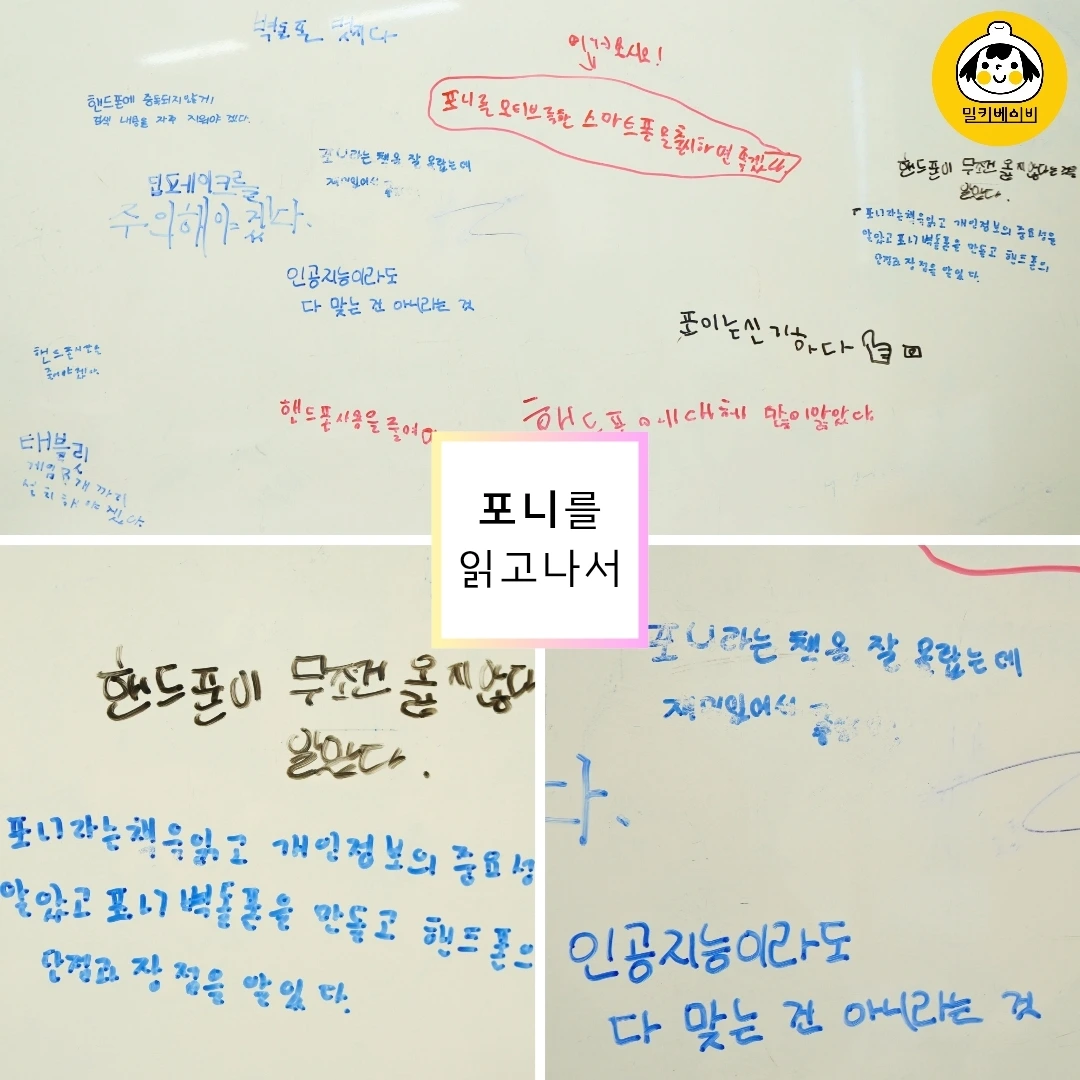 벽돌폰 멋지다
이거 보시오!
밀키베이비
핸드폰에 중독되지 않게!
검색 내용을 자주 지워야 겠다.
포니를 모티브로한 스마트폰을 출시하면 좋겠다.
포니라는 책을 잘 몰랐는데
재미있어서
딥페이크를
주의해야겠다.
핸드폰이 무조건 옳지않다는 것을
알았다.
포니라는책을읽고 개인정보의 중요성을
알았고 포니 벽돌폰을 만들고 핸드폰의
단점과 장점을 알았다.
인공지능이라도
다 맞는 건 아니라는 것
포니는신기하다
핸드폰사용을
줄여야겠다.
핸드폰사용을 줄여야
핸드폰에대해 많이알았다
태블릿
게임 2개 까지
설치해야겠다.
포니를
읽고나서
핸드폰이 무조건 옳지않다
알았다.
포니라는책을읽고 개인정보의 중요성
알았고 포니 벽돌폰을 만들고 핸드폰으
단점과 장점을 알았다.
포니라는 책을 잘 몰랐는데
재미있어서
다.
인공지능이라도
다 맞는 건 아니라는 것